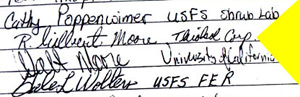 Cathy Pappenwimer USFS Shrub Lab
R. Gilbert Moore Thiokol Corp.
Walt Moore University of California
Dale L Wolters USFS FER